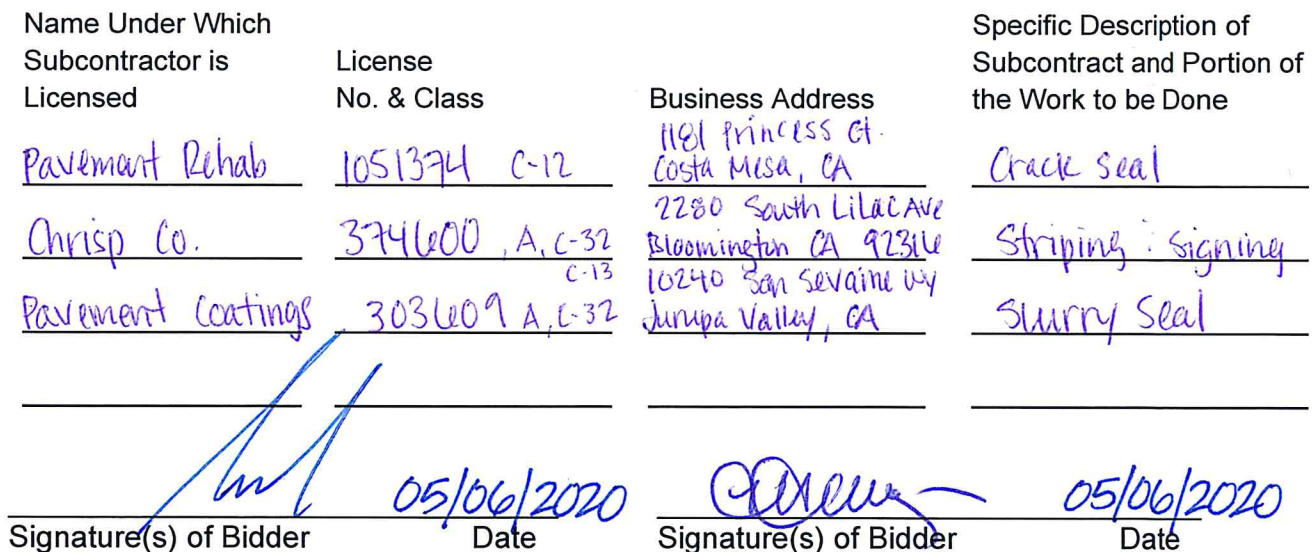 Name Under Which
Subcontractor is
Licensed
License
No. & Class
Business Address
Specific Description of
Subcontract and Portion of
the Work to be Done
Pavement Rehab
1051374 C-12
1181 Princess Ct.
Costa Mesa, CA
Crack Seal
Chrisp Co.
374600, A, C-32
2280 South Lilac Ave
Bloomington CA 92316
Striping : Signing
Pavement Coatings
C-13
303609 A, C-32
10240 San Sevaine Wy
Jurupa Valley, CA
Slurry Seal
05/06/2020
05/06/2020
Signature(s) of Bidder
Date
Signature(s) of Bidder
Date